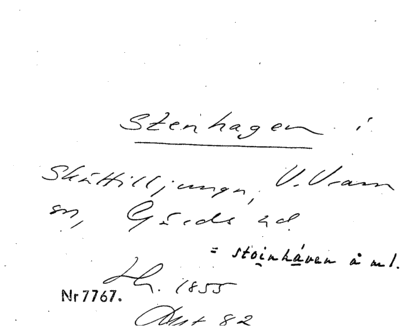 Stenhagen i
Skättilljunga, V. Vram
sn, Gärds hd.
= stoinháven å ml.
Lh. 1855
Nr 7767.
Akt 82